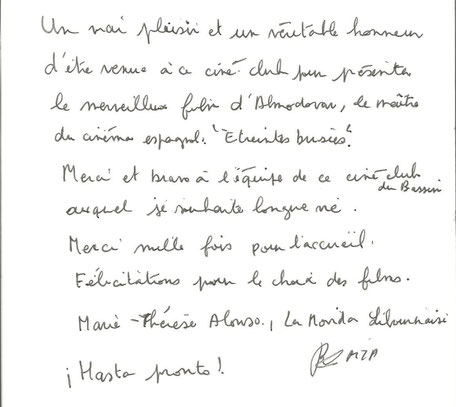 Un vrai plaisir et un véritable honneur
d'être venue à ce ciné-club pour présenter
le merveilleux film d'Almodovar, le maître
du cinéma espagnol. "Etreintes brisées".
Merci et bravo à l'équipe de ce ciné club
du Bassin
auquel je souhaite longue vie.
Merci mille fois pour l'accueil.
Félicitations pour le choix des films.
Marie-Thérèse Alonso, La Movida Libournaise
¡Hasta pronto!